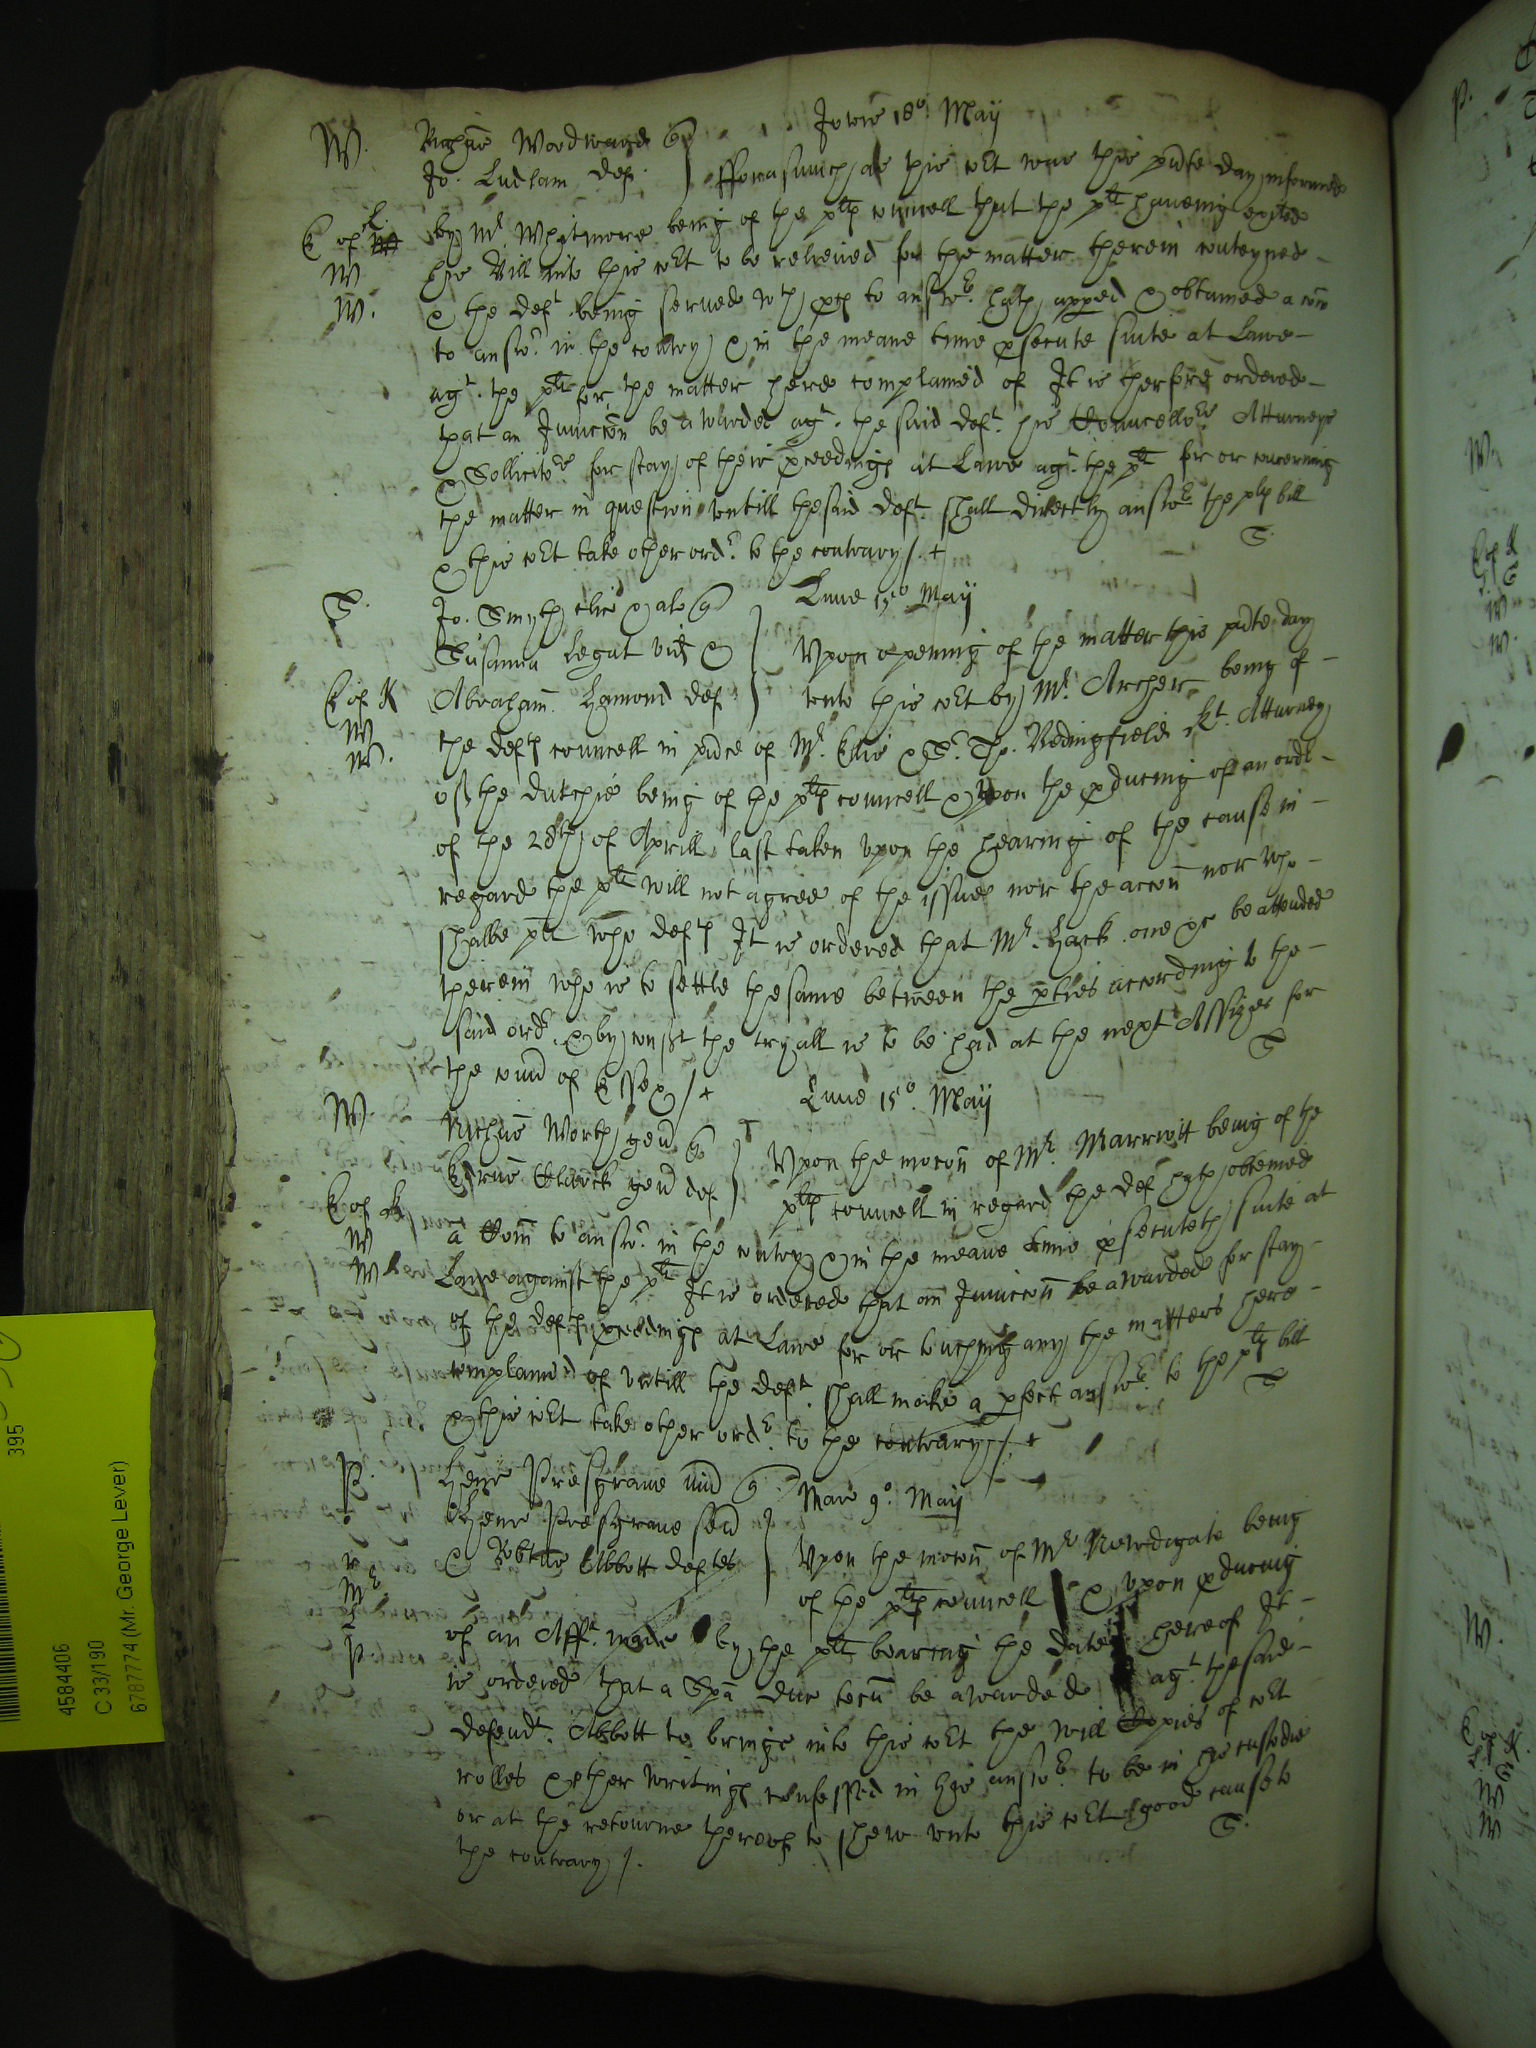 W. Richus Woodward qr Jovis 18o May
Jo. Ludlam def. fforasmuch as this cort was this pnte day informed
E of K by Mr. Whitmore being of the plts councell that the plt haveing exhted
W his Bill into this cort to be releived for the matter therein conteyned
W. & the deft. being served wth pces to answr. hath apped & obteyned a com
to answr. in the contry & in the meane time psecute suite at Lawe
agt. the plt for the matter here complained of It is therfore ordered
that an Iniuccon be awarded agt. the said deft. his Councellors Atturneys
& Sollicitrs for stay of their pceedings at Lawe agt. the plt for or concerning
the matter in question untill the said deft. shall directly answr the plts bill
& this cort take other ordr. to the contrary /. +
S.
S. Jo. Smyth & al qr Lune 15o May
Susanna Legat vid & Upon opening of the matter this pnte day
E of K Abraham Hamond def unto this cort by Mr. Archer being of
W the defts councell in pnce of Mr. Ellis & Sr. Tho. Bedingfield Kt. Attorney
W. of the dutchie being of the plts councell & upon the pducing of an ordr
of the 28th of Aprill last taken upon the hearing of the cause in
regard the plt will not agree of the issue nor the accon nor who
shalbe plt who deft It is ordered that Mr. Hack one &c be attended
therein who is to settle the same betweene the pties according to the
said ordr. & by consent the tryall is to be had at the next Assizes for
the count of Essex /. +
S
W. Richus Worth gen qr Lune 15o. May
gen def Upon the mocon of Mr. Marriott being of the
E of K plts councell in regard the def hath obteined
W a Com to answr. in the contry & in the meane time psecuteth suite at
W Lawe against the plt It is ordered that an Iniuccon be awarded for stay
of the defts pceedings at Lawe for or touching any the matters here
complained of untill the deft. shall make a pfect answr. to the plts bill
& this cort take other ordr. to the contrary /. +
S
P. Henr Presgrave iun qr Mar 9o. May
Henr Presgrave sen
& Robtus Abbott deftes Upon the mocon of Mr Newdigate being
of the plts councell & upon pducing
of an Afft. made by the plt bearing the date hereof It
P is ordered that a Spa duc tecu be awarded agt the said
defendt. Abbott to bringe into this cort the will Copies of cort
rolles & other writings confessed in his answr. to be in his custodie
or at the retourne thereof to shew unto this cort good cause to
the contrary /.
S.
395
4584406
C 33/190
6787774 (Mr. George Lever)